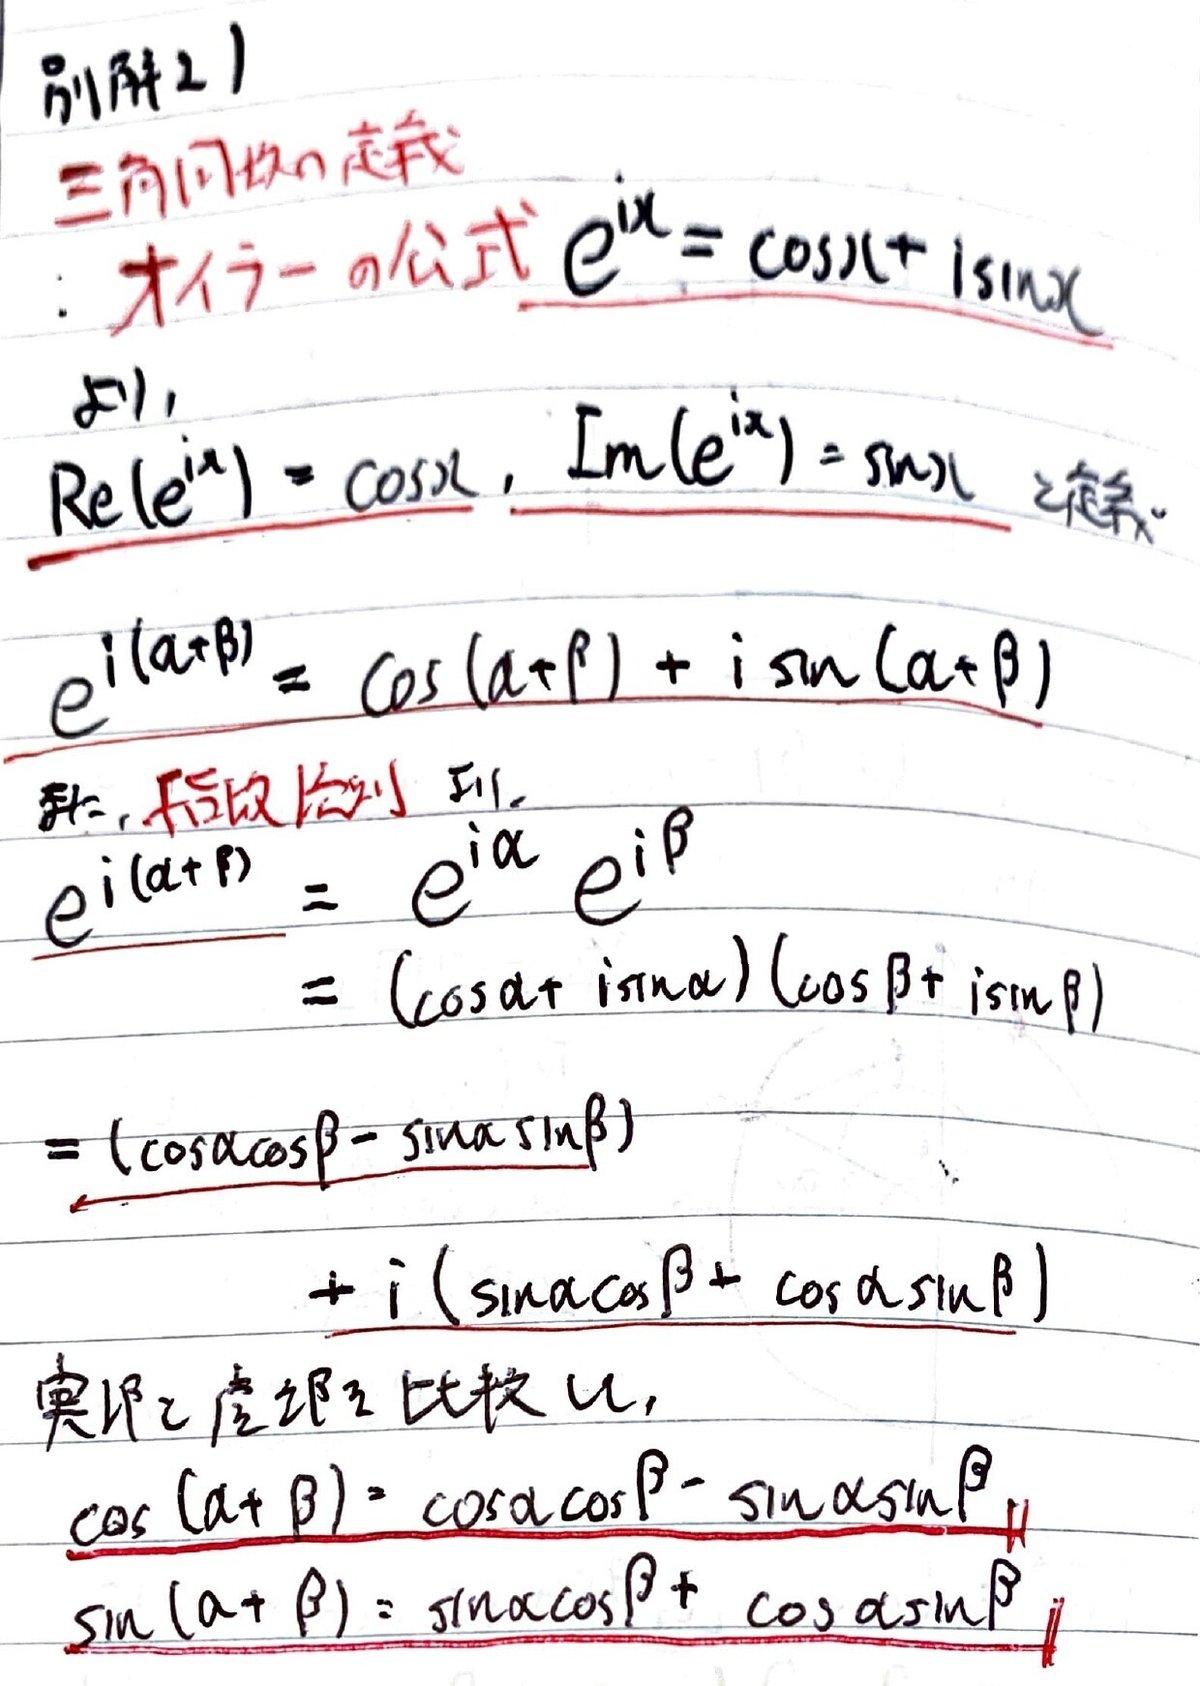 別解2)
三角関数の定義
: オイラーの公式 e^{ix} = cosx + isinx
より,
Re(e^{ix}) = cosx, Im(e^{ix}) = sinx と定義.
e^{i(α+β)} = cos(α+β) + i sin(α+β)
また, 指数法則 より,
e^{i(α+β)} = e^{iα} e^{iβ}
= (cosα + isinα)(cosβ + isinβ)
= (cosαcosβ - sinαsinβ)
+ i(sinαcosβ + cosαsinβ)
実部と虚部を比較し,
cos(α+β) = cosαcosβ - sinαsinβ
sin(α+β) = sinαcosβ + cosαsinβ